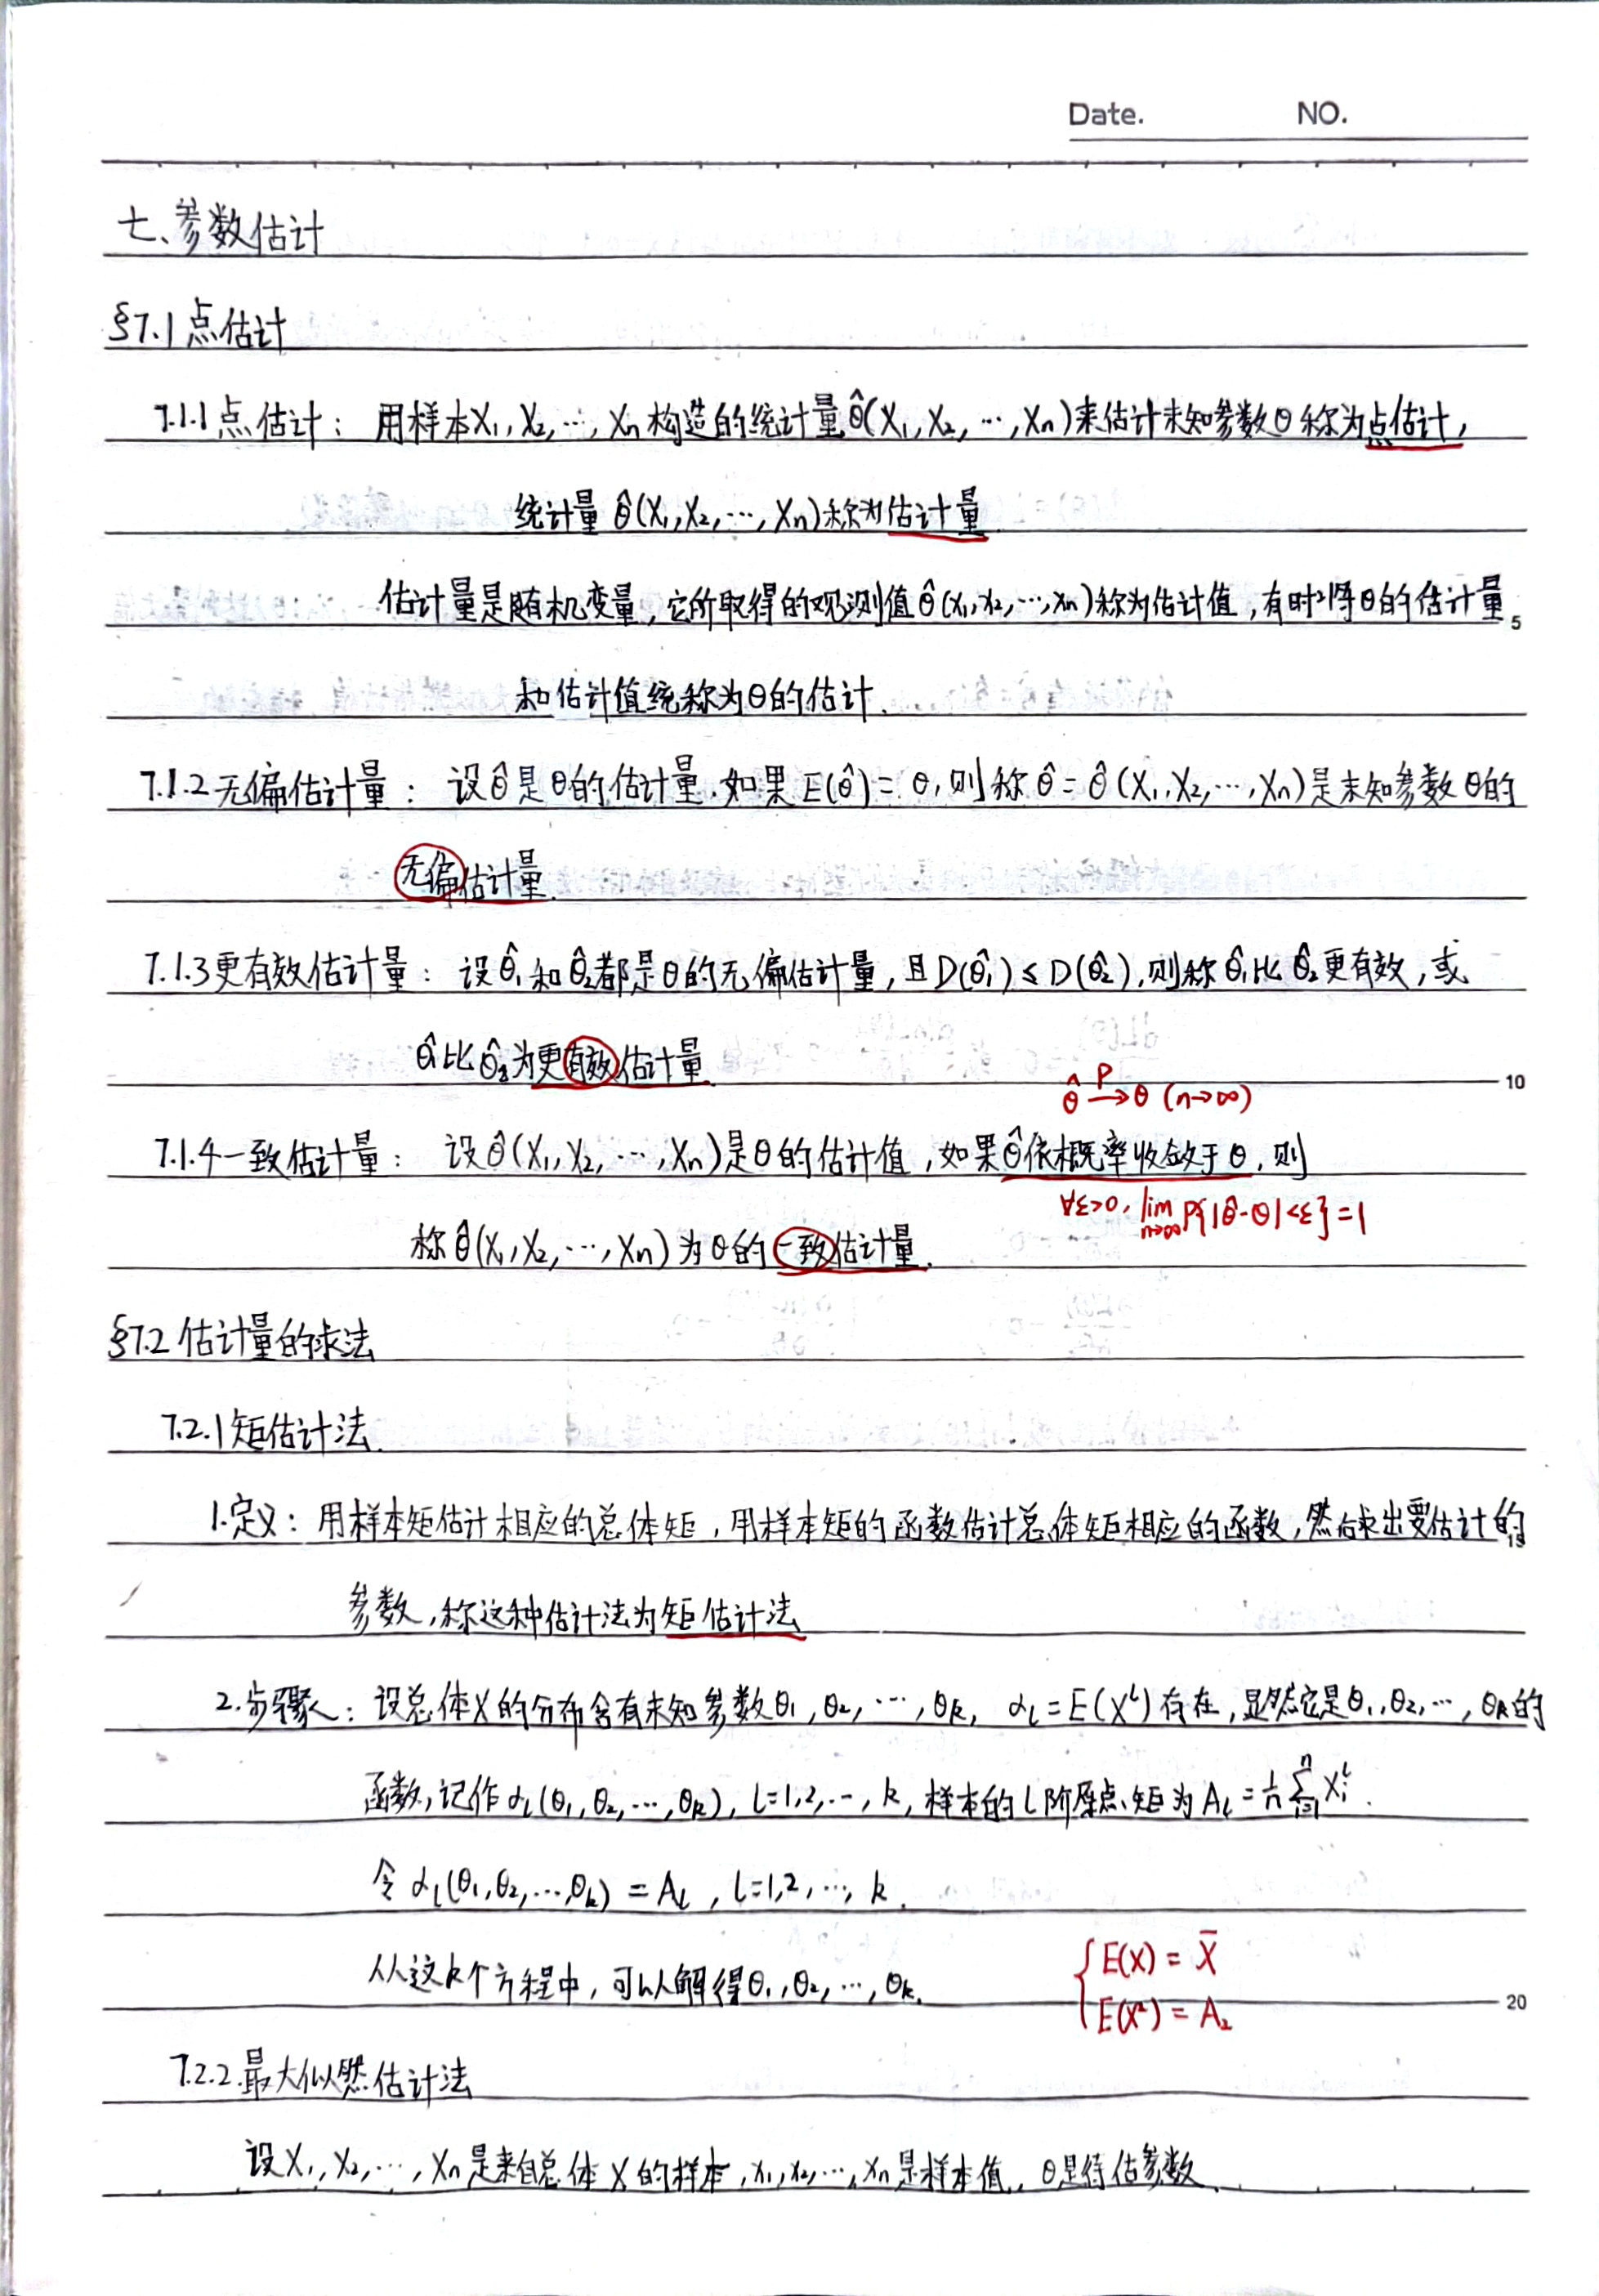 Date. NO.
七、参数估计
§7.1 点估计
7.1.1 点估计：用样本X₁, X₂, …, Xn 构造的统计量 θ̂(X₁, X₂, …, Xn)来估计未知参数θ称为点估计,
统计量 θ̂(X₁, X₂, …, Xn)称为估计量
估计量是随机变量, 它所取得的观测值 θ̂(x₁, x₂, …, xn)称为估计值, 有时将θ的估计量 5
和估计值统称为θ的估计.
7.1.2 无偏估计量：设θ̂是θ的估计量.如果E(θ̂)=θ, 则称 θ̂=θ̂(X₁, X₂, …, Xn)是未知参数θ的
无偏估计量.
7.1.3 更有效估计量：设θ̂₁和θ̂₂都是θ的无偏估计量, 且D(θ̂₁)≤D(θ̂₂), 则称θ̂₁比θ̂₂更有效, 或
θ̂₁比θ̂₂为更有效估计量. 10
θ̂ →ᴾ θ (n→∞)
7.1.4 一致估计量：设θ̂(X₁, X₂, …, Xn)是θ的估计值, 如果θ̂依概率收敛于θ, 则
∀ε>0, lim n→∞ P{|θ̂-θ|<ε}=1
称θ̂(X₁, X₂, …, Xn)为θ的一致估计量.
§7.2 估计量的求法
7.2.1 矩估计法.
1.定义：用样本矩估计相应的总体矩, 用样本矩的函数估计总体矩相应的函数, 然后求出要估计的 15
参数, 称这种估计法为矩估计法
2.步骤：设总体X的分布含有未知参数θ₁, θ₂, …, θk, αl=E(Xˡ)存在, 显然它是θ₁, θ₂, …, θk的
函数, 记作αl(θ₁, θ₂, …, θk), l=1,2,…, k, 样本的l阶原点矩为 Al=1/n ∑ⁿᵢ₌₁ Xᵢˡ.
令 αl(θ₁, θ₂, …, θk) = Al, l=1,2, …, k.
从这k个方程中, 可以解得θ₁, θ₂, …, θk.
{ E(X) = X̄
E(X²) = A₂ 20
7.2.2.最大似然估计法
设X₁, X₂, …, Xn是来自总体X的样本, x₁, x₂, …, xn是样本值, θ是待估参数.